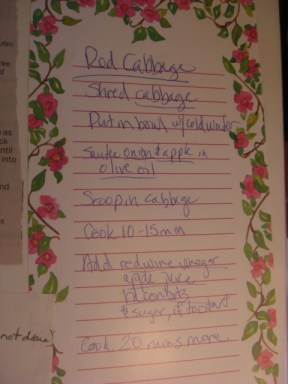 Red Cabbage
Shred cabbage
Put in bowl w/cold water
Sautee onion & apple in
olive oil
Scoop in cabbage
Cook 10-15 min
Add red wine vinegar
apple juice
& sugar, if too tart
Cook 20 mins more
not done
and
as
ck
until
into